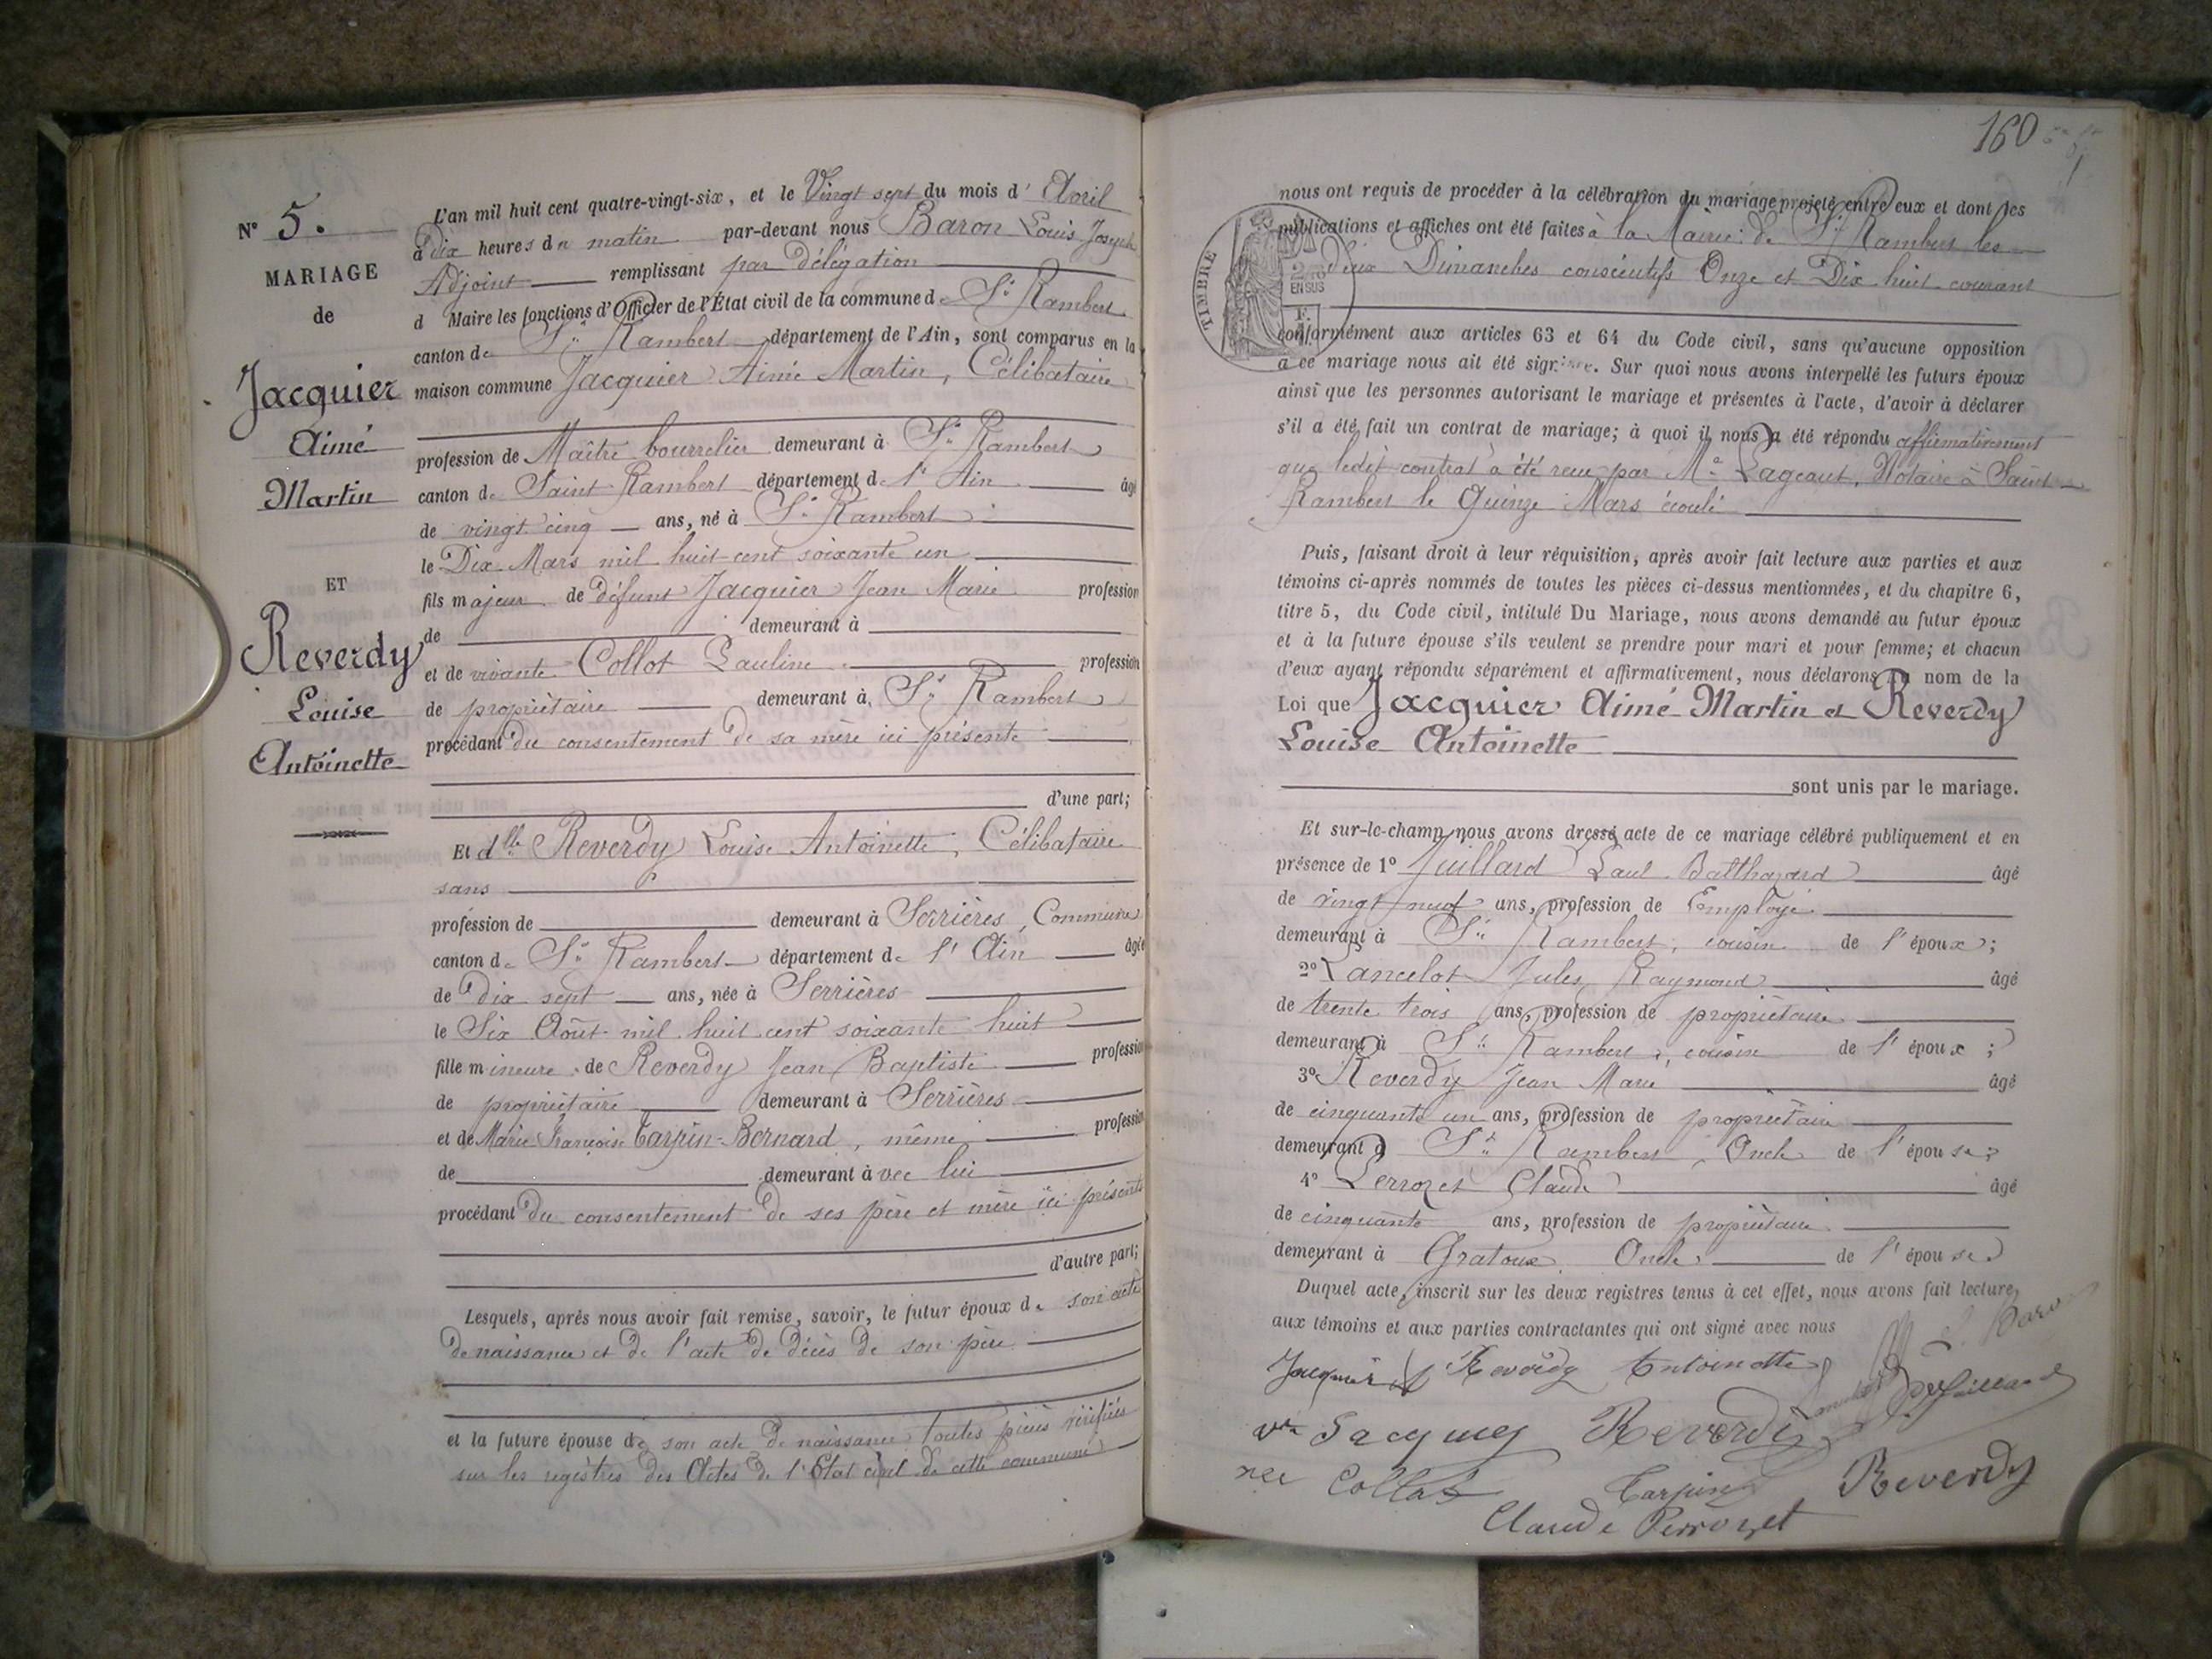 N° 5.
MARIAGE
de
Jacquier
Aimé
Martin
ET
Reverdy
Louise
Antoinette
L'an mil huit cent quatre-vingt-six, et le Vingt sept du mois d' Avril
à Dix heures du matin par-devant nous Baron Louis Joseph
Adjoint remplissant par délégation
d Maire les fonctions d'Officier de l'État civil de la commune de St Rambert
canton de St Rambert département de l'Ain, sont comparus en la
maison commune Jacquier Aimé Martin, Célibataire
profession de Maître bourrelier demeurant à St Rambert
canton de Saint Rambert département de l'Ain âgé
de vingt cinq ans, né à St Rambert
le Dix Mars mil huit cent soixante un
fils majeur de défunt Jacquier Jean Marie profession
de demeurant à
et de vivante Collot Pauline profession
de propriétaire demeurant à St Rambert
procédant du consentement de sa mère ici présente
d'une part;
Et dlle Reverdy Louise Antoinette, Célibataire
sans
profession de demeurant à Serrières, Commune
canton de St Rambert département de l'Ain âgée
de dix sept ans, née à Serrières
le Six Août mil huit cent soixante huit
fille mineure de Reverdy Jean Baptiste profession
de propriétaire demeurant à Serrières
et de Marie Françoise Tarpin-Bernard, même profession
de demeurant avec lui
procédant du consentement de ses père et mère ici présents
d'autre part;
Lesquels, après nous avoir fait remise, savoir, le futur époux de son acte
de naissance et de l'acte de décès de son père
et la future épouse de son acte de naissance toutes pièces vérifiées
sur les registres des Actes de l'État civil de cette commune
160
TIMBRE
2/10
EN SUS
F.
nous ont requis de procéder à la célébration du mariage projeté entre eux et dont les
publications et affiches ont été faites à la Mairie de St Rambert les
deux Dimanches consécutifs Onze et Dix huit courant
conformément aux articles 63 et 64 du Code civil, sans qu'aucune opposition
à ce mariage nous ait été signifiée. Sur quoi nous avons interpellé les futurs époux
ainsi que les personnes autorisant le mariage et présentes à l'acte, d'avoir à déclarer
s'il a été fait un contrat de mariage; à quoi il nous a été répondu affirmativement
que ledit contrat a été reçu par Me Notaire à Saint
Rambert le Quinze Mars écoulé
Puis, faisant droit à leur réquisition, après avoir fait lecture aux parties et aux
témoins ci-après nommés de toutes les pièces ci-dessus mentionnées, et du chapitre 6,
titre 5, du Code civil, intitulé Du Mariage, nous avons demandé au futur époux
et à la future épouse s'ils veulent se prendre pour mari et pour femme; et chacun
d'eux ayant répondu séparément et affirmativement, nous déclarons au nom de la
Loi que Jacquier Aimé Martin et Reverdy
Louise Antoinette
sont unis par le mariage.
Et sur-le-champ nous avons dressé acte de ce mariage célébré publiquement et en
présence de 1° Juillard Paul Balthazard âgé
de vingt neuf ans, profession de Employé
demeurant à St Rambert, cousin de l'époux;
2° Lancelot Jules Raymond âgé
de trente trois ans, profession de propriétaire
demeurant à St Rambert, cousin de l'époux;
3° Reverdy Jean Marie âgé
de cinquante un ans, profession de propriétaire
demeurant à St Rambert, Oncle de l'épouse;
4° Perrozet Claude âgé
de cinquante ans, profession de propriétaire
demeurant à Gratoux Oncle de l'épouse
Duquel acte, inscrit sur les deux registres tenus à cet effet, nous avons fait lecture
aux témoins et aux parties contractantes qui ont signé avec nous
L. Baron
Jacquier Reverdy Antoinette
Juillard
ve Jacquier Reverdy
née Collot Tarpin Reverdy
Claude Perrozet